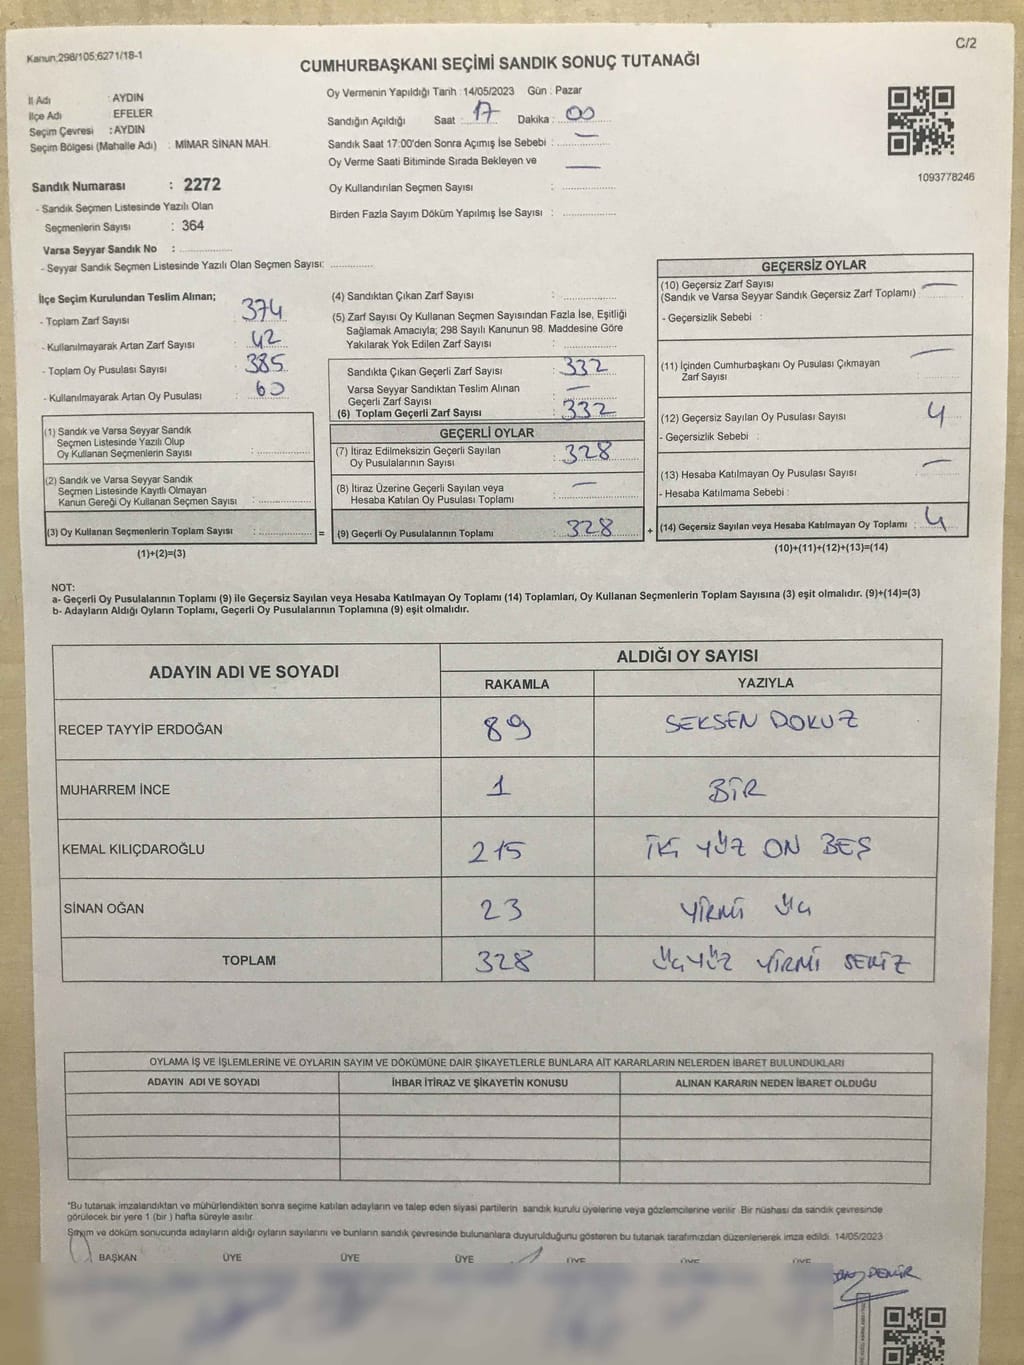 Kanun:298/105;6271/18-1
C/2
CUMHURBAŞKANI SEÇİMİ SANDIK SONUÇ TUTANAĞI
İl Adı : AYDIN
İlçe Adı EFELER
Seçim Çevresi : AYDIN
Seçim Bölgesi (Mahalle Adı) : MİMAR SİNAN MAH.
Oy Vermenin Yapıldığı Tarih : 14/05/2023 Gün : Pazar
Sandığın Açıldığı Saat : 17 Dakika : 00
Sandık Saat 17:00'den Sonra Açımış İse Sebebi : —
Oy Verme Saati Bitiminde Sırada Bekleyen ve —
Oy Kullandırılan Seçmen Sayısı :
Birden Fazla Sayım Döküm Yapılmış İse Sayısı :
1093778246
Sandık Numarası : 2272
- Sandık Seçmen Listesinde Yazılı Olan
Seçmenlerin Sayısı : 364
Varsa Seyyar Sandık No :
- Seyyar Sandık Seçmen Listesinde Yazılı Olan Seçmen Sayısı:
İlçe Seçim Kurulundan Teslim Alınan;
- Toplam Zarf Sayısı : 374
- Kullanılmayarak Artan Zarf Sayısı : 42
- Toplam Oy Pusulası Sayısı : 385
- Kullanılmayarak Artan Oy Pusulası : 60
(1) Sandık ve Varsa Seyyar Sandık
Seçmen Listesinde Yazılı Olup
Oy Kullanan Seçmenlerin Sayısı :
(2) Sandık ve Varsa Seyyar Sandık
Seçmen Listesinde Kayıtlı Olmayan
Kanun Gereği Oy Kullanan Seçmen Sayısı :
(3) Oy Kullanan Seçmenlerin Toplam Sayısı : =
(1)+(2)=(3)
(4) Sandıktan Çıkan Zarf Sayısı :
(5) Zarf Sayısı Oy Kullanan Seçmen Sayısından Fazla İse, Eşitliği
Sağlamak Amacıyla; 298 Sayılı Kanunun 98. Maddesine Göre
Yakılarak Yok Edilen Zarf Sayısı :
Sandıkta Çıkan Geçerli Zarf Sayısı : 332
Varsa Seyyar Sandıktan Teslim Alınan —
Geçerli Zarf Sayısı :
(6) Toplam Geçerli Zarf Sayısı : 332
GEÇERLİ OYLAR
(7) İtiraz Edilmeksizin Geçerli Sayılan
Oy Pusulalarının Sayısı : 328
(8) İtiraz Üzerine Geçerli Sayılan veya —
Hesaba Katılan Oy Pusulası Toplamı :
(9) Geçerli Oy Pusulalarının Toplamı : 328 +
GEÇERSİZ OYLAR
(10) Geçersiz Zarf Sayısı —
(Sandık ve Varsa Seyyar Sandık Geçersiz Zarf Toplamı) :
- Geçersizlik Sebebi :
(11) İçinden Cumhurbaşkanı Oy Pusulası Çıkmayan —
Zarf Sayısı :
(12) Geçersiz Sayılan Oy Pusulası Sayısı : 4
- Geçersizlik Sebebi :
(13) Hesaba Katılmayan Oy Pusulası Sayısı : —
- Hesaba Katılmama Sebebi :
(14) Geçersiz Sayılan veya Hesaba Katılmayan Oy Toplamı : 4
(10)+(11)+(12)+(13)=(14)
NOT:
a- Geçerli Oy Pusulalarının Toplamı (9) ile Geçersiz Sayılan veya Hesaba Katılmayan Oy Toplamı (14) Toplamları, Oy Kullanan Seçmenlerin Toplam Sayısına (3) eşit olmalıdır. (9)+(14)=(3)
b- Adayların Aldığı Oyların Toplamı, Geçerli Oy Pusulalarının Toplamına (9) eşit olmalıdır.
ADAYIN ADI VE SOYADI
ALDIĞI OY SAYISI
RAKAMLA YAZIYLA
RECEP TAYYİP ERDOĞAN 89 SEKSEN DOKUZ
MUHARREM İNCE 1 BİR
KEMAL KILIÇDAROĞLU 215 İKİ YÜZ ON BEŞ
SİNAN OĞAN 23 YİRMİ ÜÇ
TOPLAM 328 ÜÇYÜZ YİRMİ SEKİZ
OYLAMA İŞ VE İŞLEMLERİNE VE OYLARIN SAYIM VE DÖKÜMÜNE DAİR ŞİKAYETLERLE BUNLARA AİT KARARLARIN NELERDEN İBARET BULUNDUKLARI
ADAYIN ADI VE SOYADI İHBAR İTİRAZ VE ŞİKAYETİN KONUSU ALINAN KARARIN NEDEN İBARET OLDUĞU
*Bu tutanak imzalandıktan ve mühürlendikten sonra seçime katılan adayların ve talep eden siyasi partilerin sandık kurulu üyelerine veya gözlemcilerine verilir. Bir nüshası da sandık çevresinde
görülecek bir yere 1 (bir ) hafta süreyle asılır.
Sayım ve döküm sonucunda adayların aldığı oyların sayılarını ve bunların sandık çevresinde bulunanlara duyurulduğunu gösteren bu tutanak tarafımızdan düzenlenerek imza edildi. 14/05/2023
BAŞKAN ÜYE ÜYE ÜYE ÜYE ÜYE ÜYE
DEMİR